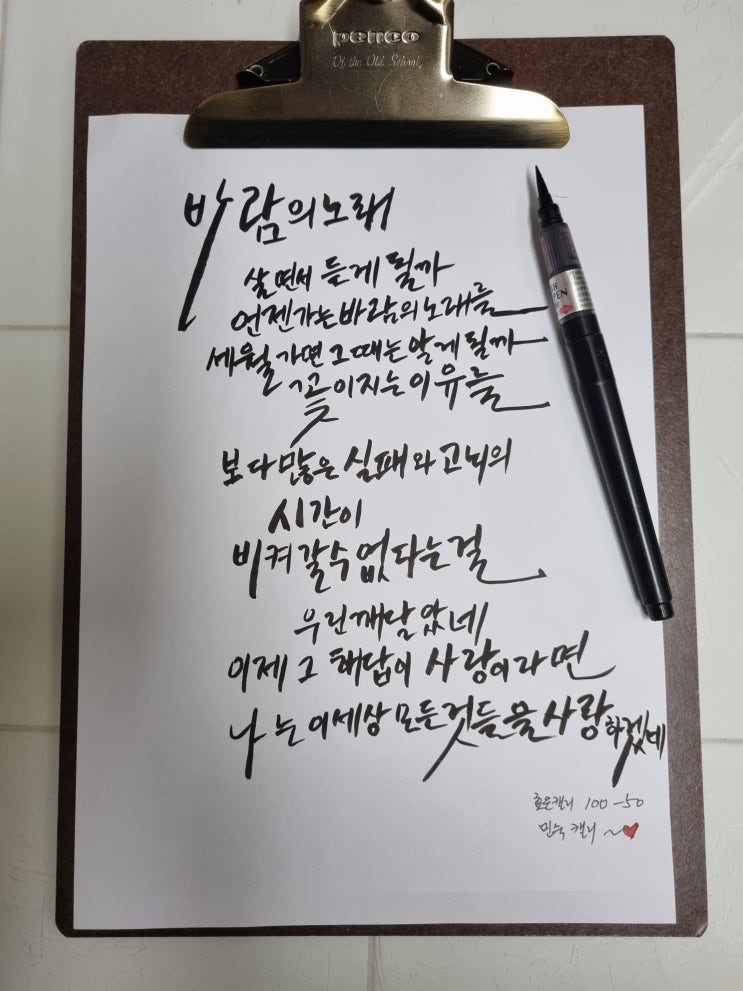 penco
Of the Old School
바람의 노래
살면서 듣게 될까
언젠가는 바람의 노래를
세월 가면 그때는 알게 될까
꽃이 지는 이유를
보다 많은 실패와 고뇌의
시간이
비켜갈 수 없다는 걸
우린 깨달았네
이제 그 해답이 사랑이라면
나는 이 세상 모든 것들을 사랑하겠네
PEN
100-50
민숙 캘리 ~♥